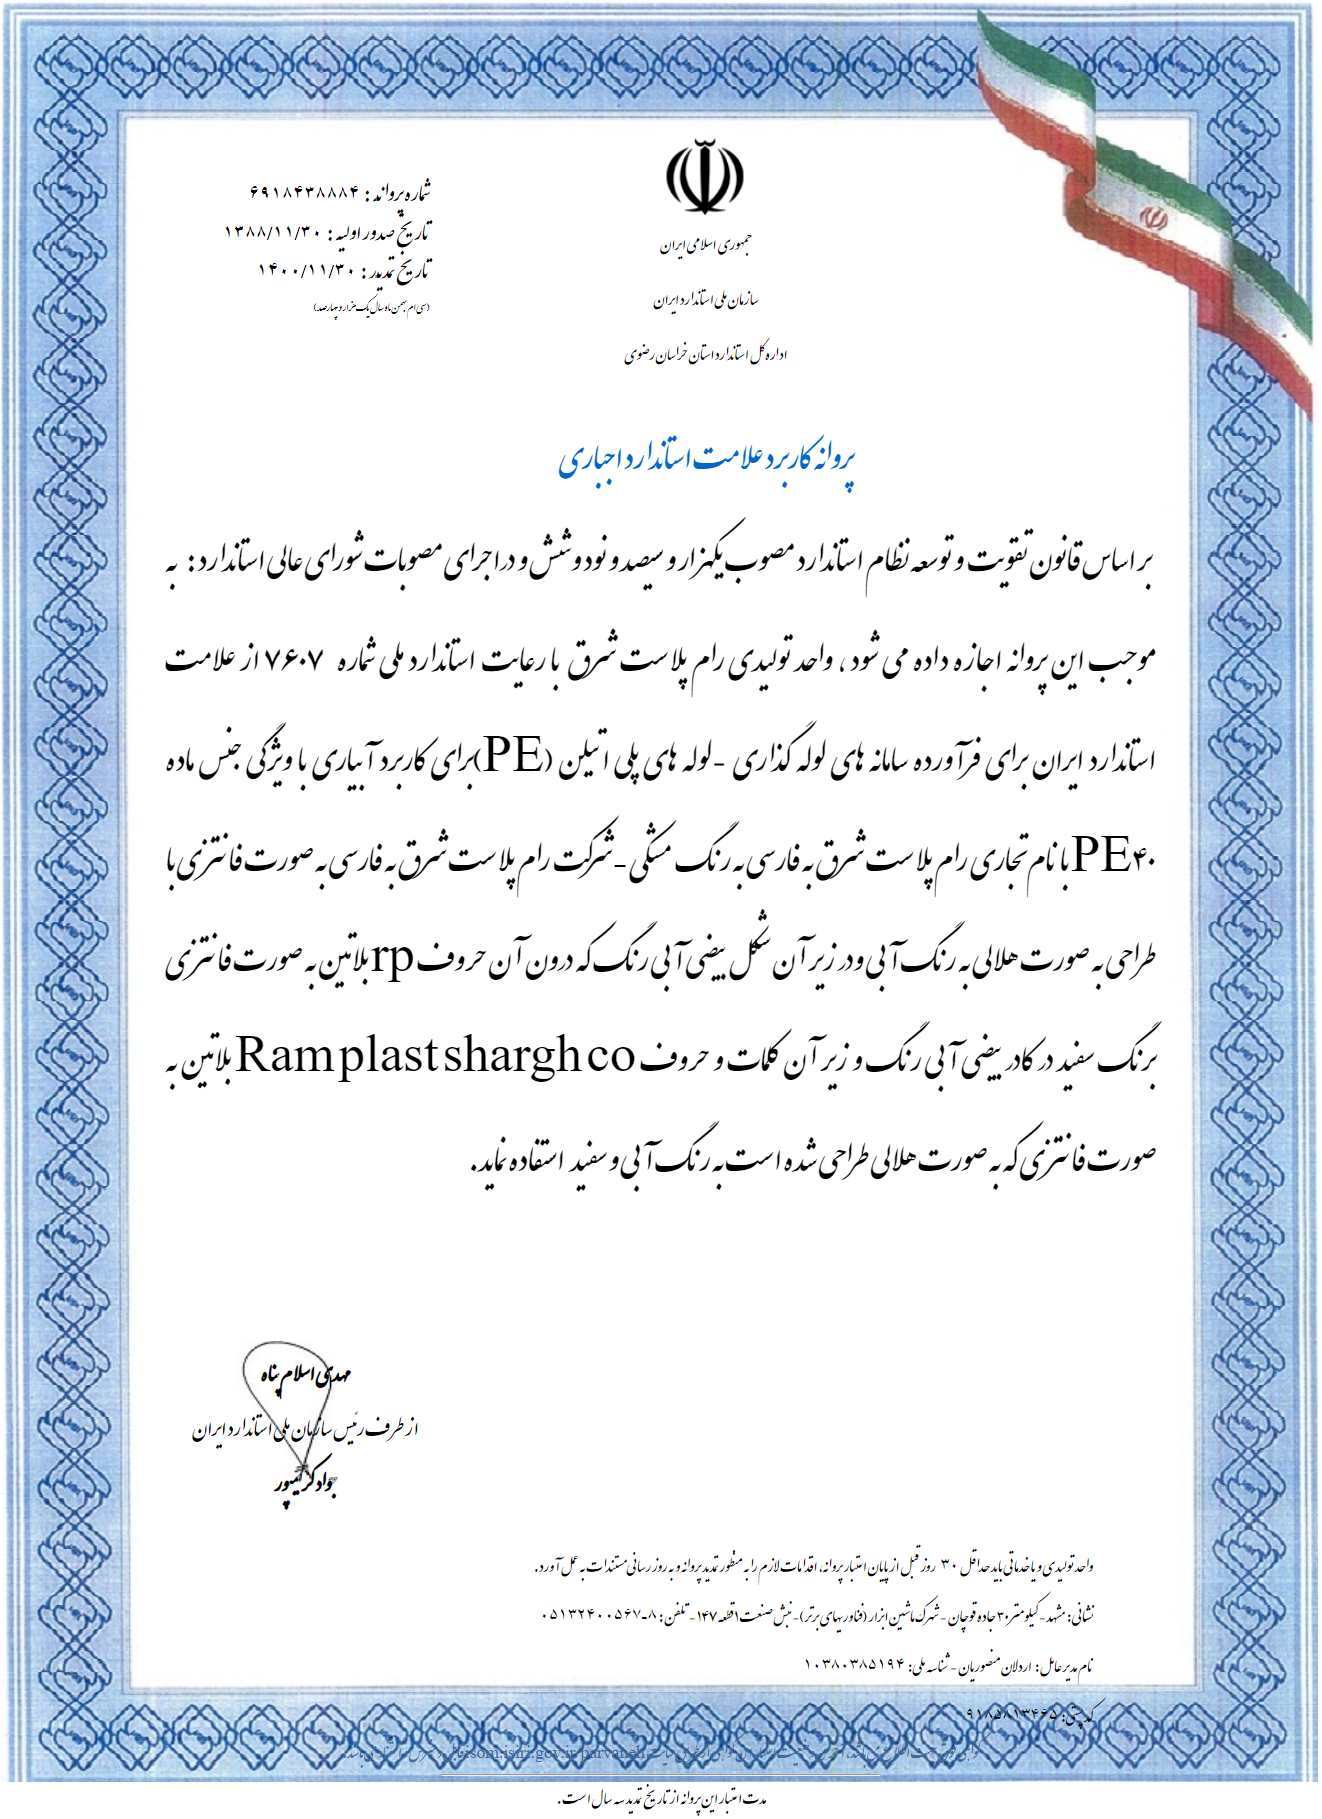 شماره پروانه : ۶۹۱۸۴۳۸۸۸۴
تاریخ صدور اولیه : ۱۳۸۸/۱۱/۳۰
تاریخ تمدید : ۱۴۰۰/۱۱/۳۰
(سی ام بهمن ماه سال یک هزار و چهارصد)
جمهوری اسلامی ایران
سازمان ملی استاندارد ایران
اداره کل استاندارد استان خراسان رضوی
پروانه کاربرد علامت استاندارد اجباری
بر اساس قانون تقویت و توسعه نظام استاندارد مصوب یکهزار و سیصد و نود و شش و در اجرای مصوبات شورای عالی استاندارد : به
موجب این پروانه اجازه داده می شود ، واحد تولیدی رام پلاست شرق با رعایت استاندارد ملی شماره ۷۶۰۷ از علامت
استاندارد ایران برای فرآورده سامانه های لوله گذاری -لوله های پلی اتیلن (PE)برای کاربرد آبیاری با ویژگی جنس ماده
PE۴۰ با نام تجاری رام پلاست شرق به فارسی به رنگ مشکی -شرکت رام پلاست شرق به فارسی به صورت فانتزی با
طراحی به صورت هلالی به رنگ آبی ودر زیر آن شکل بیضی آبی رنگ که درون آن حروف rp بلاتین به صورت فانتزی
برنگ سفید در کادر بیضی آبی رنگ و زیر آن کلمات و حروف Ram plast shargh co بلاتین به
صورت فانتزی که به صورت هلالی طراحی شده است به رنگ آبی و سفید استفاده نماید.
مهدی اسلام پناه
از طرف رئیس سازمان ملی استاندارد ایران
جواد کریمپور
واحد تولیدی و یا خدماتی باید حداقل ۳۰ روز قبل از پایان اعتبار پروانه، اقدامات لازم را به منظور تمدید پروانه و به روز رسانی مستندات به عمل آورد.
نشانی: مشهد-کیلومتر۳۰جاده قوچان-شهرک ماشین ابزار (فناوریهای برتر)-نبش صنعت۱قطعه۱۴۷- تلفن: ۸-۰۵۱۳۲۴۰۰۵۶۷
نام مدیرعامل: اردلان منصوریان - شناسه ملی: ۱۰۳۸۰۳۸۵۱۹۴
کد پستی: ۹۱۸۵۸۱۳۴۶۵
isom.isiri.gov.ir/parvaneh
مدت اعتبار این پروانه از تاریخ تمدید سه سال است.